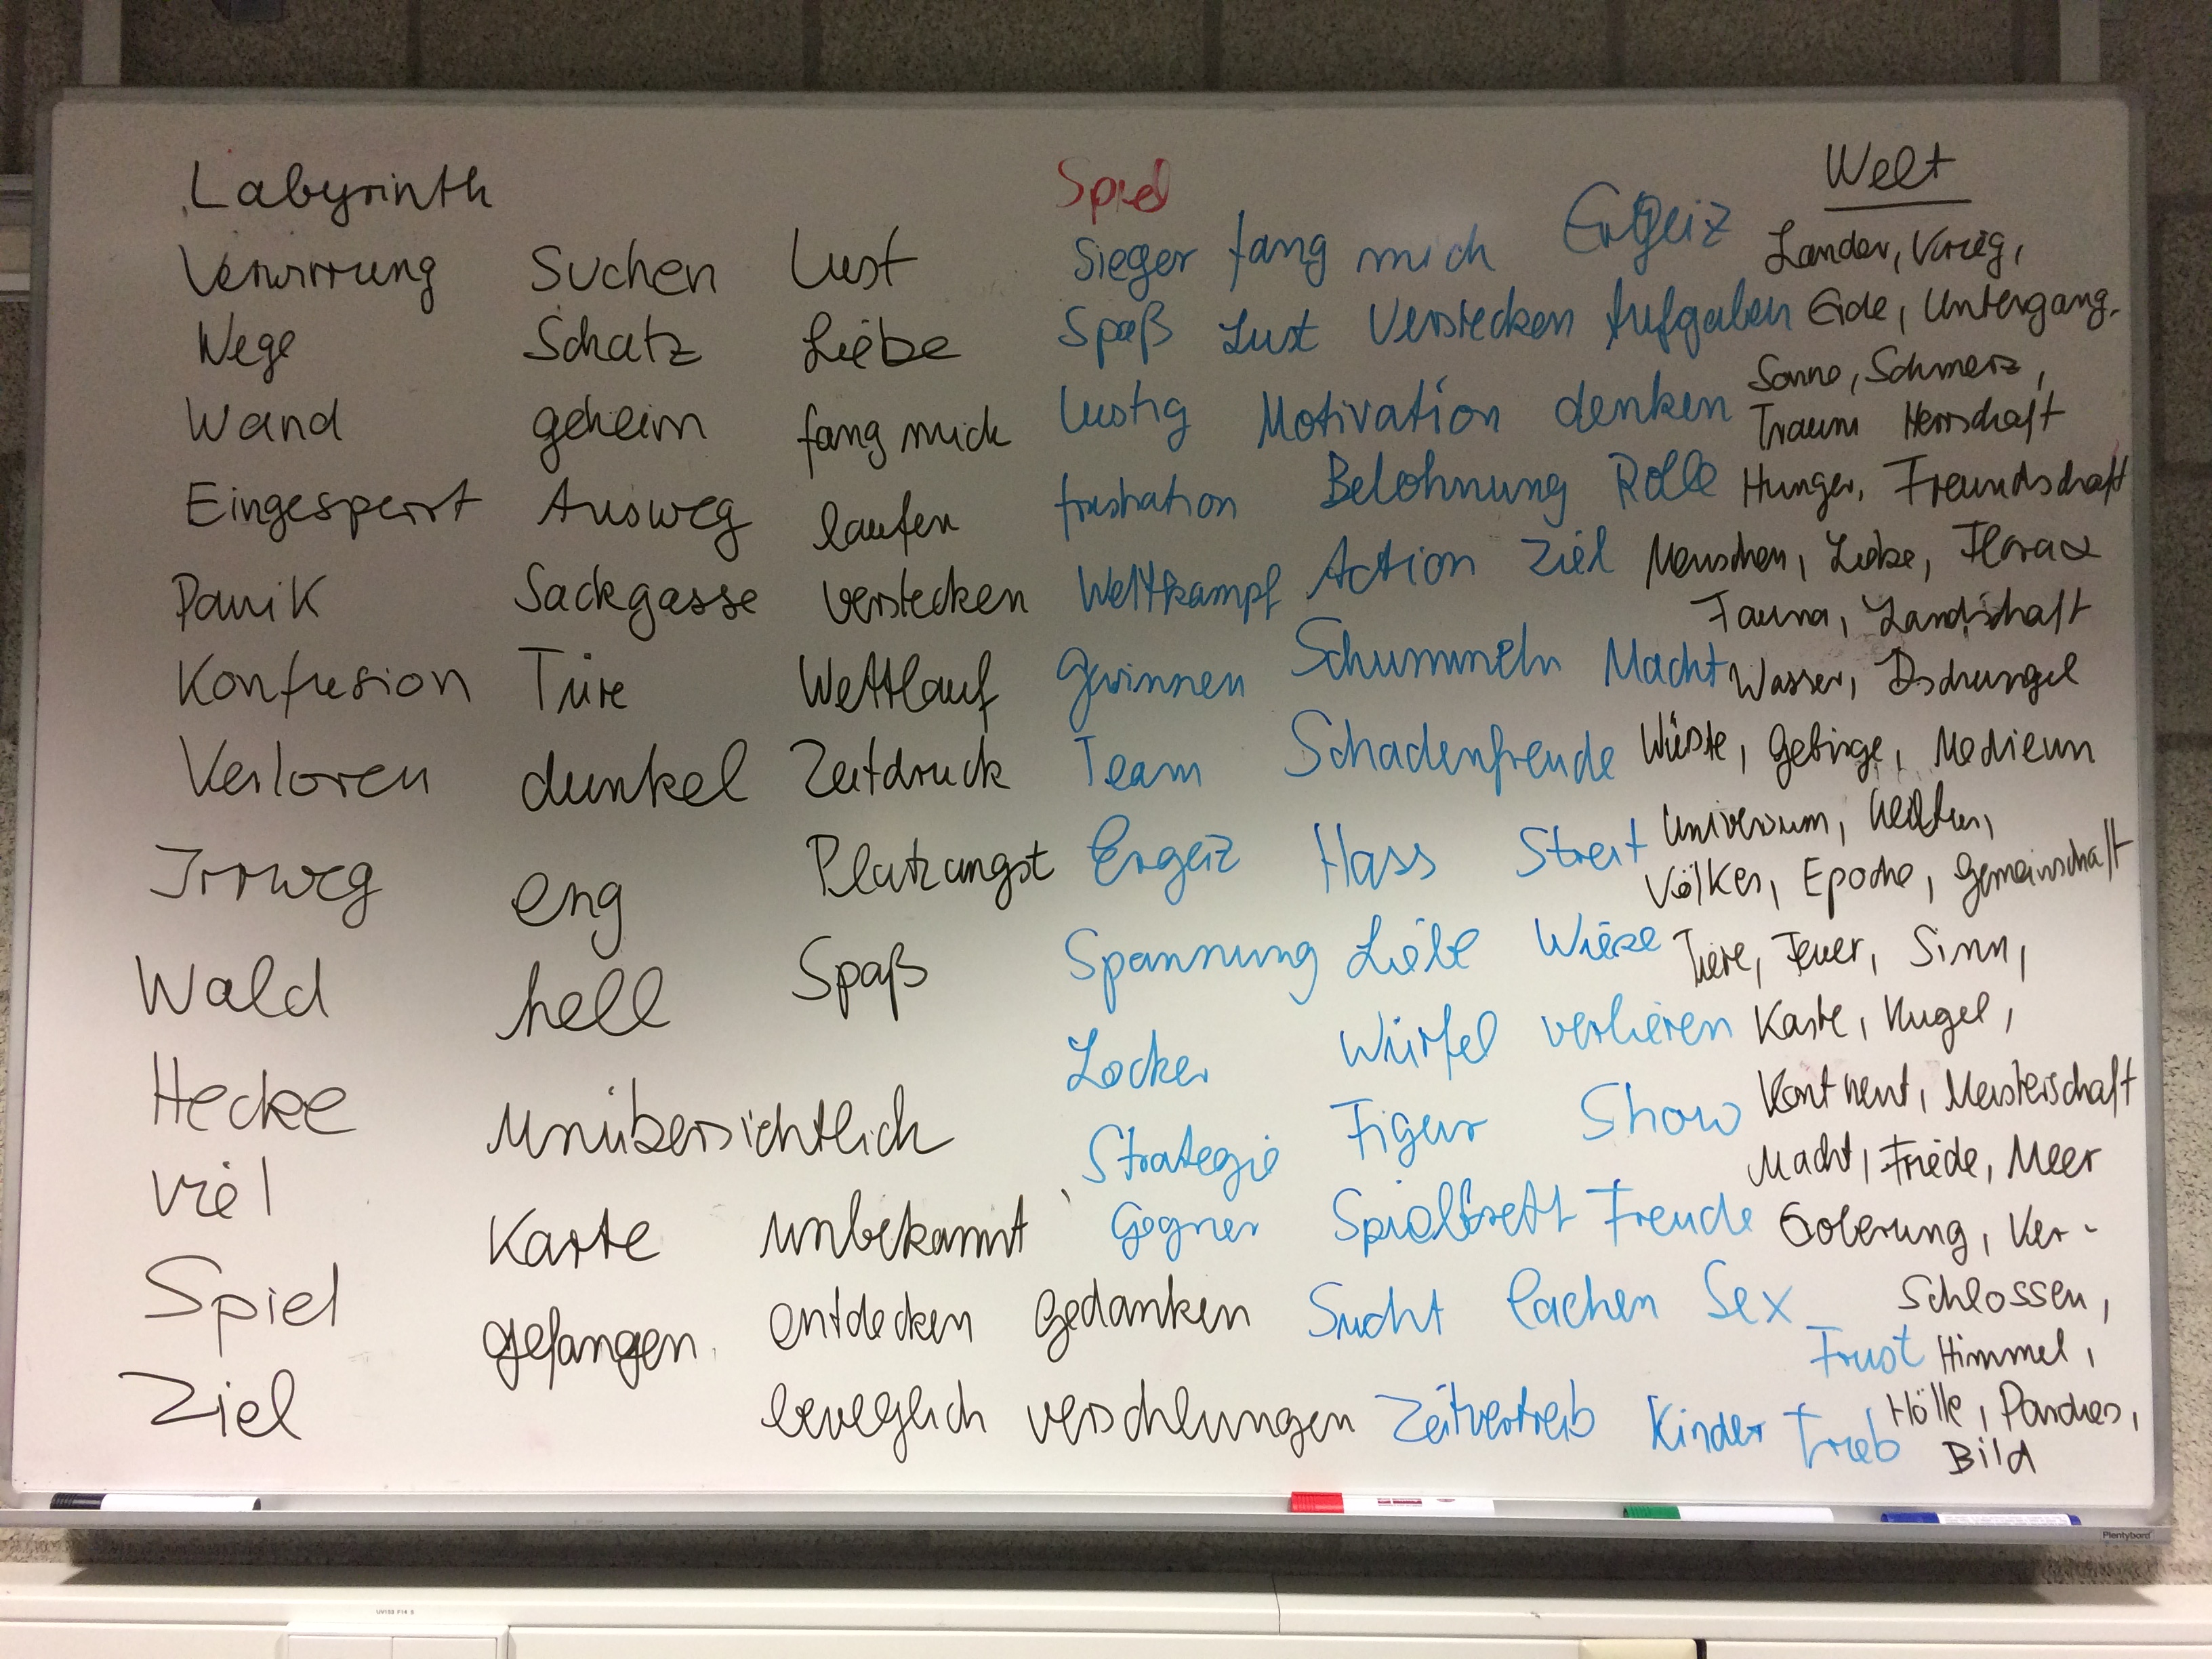 Labyrinth
Verwirrung
Wege
Wand
Eingesperrt
Panik
Konfusion
Verloren
Irrweg
Wald
Hecke
viel
Spiel
Ziel
Suchen
Schatz
geheim
Ausweg
Sackgasse
Türe
dunkel
eng
hell
unübersichtlich
Karte
gefangen
Lust
Liebe
fang mich
laufen
verstecken
Wettlauf
Zeitdruck
Platzangst
Spaß
unbekannt
entdecken Gedanken
beweglich verschlungen
Spiel
Sieger fang mich Ergeiz
Spaß Lust Verstecken Aufgaben
lustig Motivation denken
frustration Belohnung Rolle
Wettkampf Action Ziel
gewinnen Schummeln Macht
Team Schadenfreude
Ergeiz Hass Streit
Spannung Liebe Wiese
Locker Würfel verlieren
Strategie Figur Show
Gegner Spielbrett Freude
Sucht lachen Sex
Frust
Zeitvertreib Kinder Trieb
Welt
Länder, Krieg,
Erde, Untergang,
Sonne, Schmerz,
Traum Herrschaft
Hunger, Freundschaft
Menschen, Liebe, Flora &
Fauna, Landschaft
Wasser, Dschungel
Wüste, Gebirge,
Universum,
Völker, Epoche, Gemeinschaft
Tiere, Feuer, Sinn,
Karte, Kugel,
Kontinent, Meisterschaft
Macht, Friede, Meer
Eroberung, Ver-
schlossen,
Himmel,
Hölle,
Bild
Plentyboard